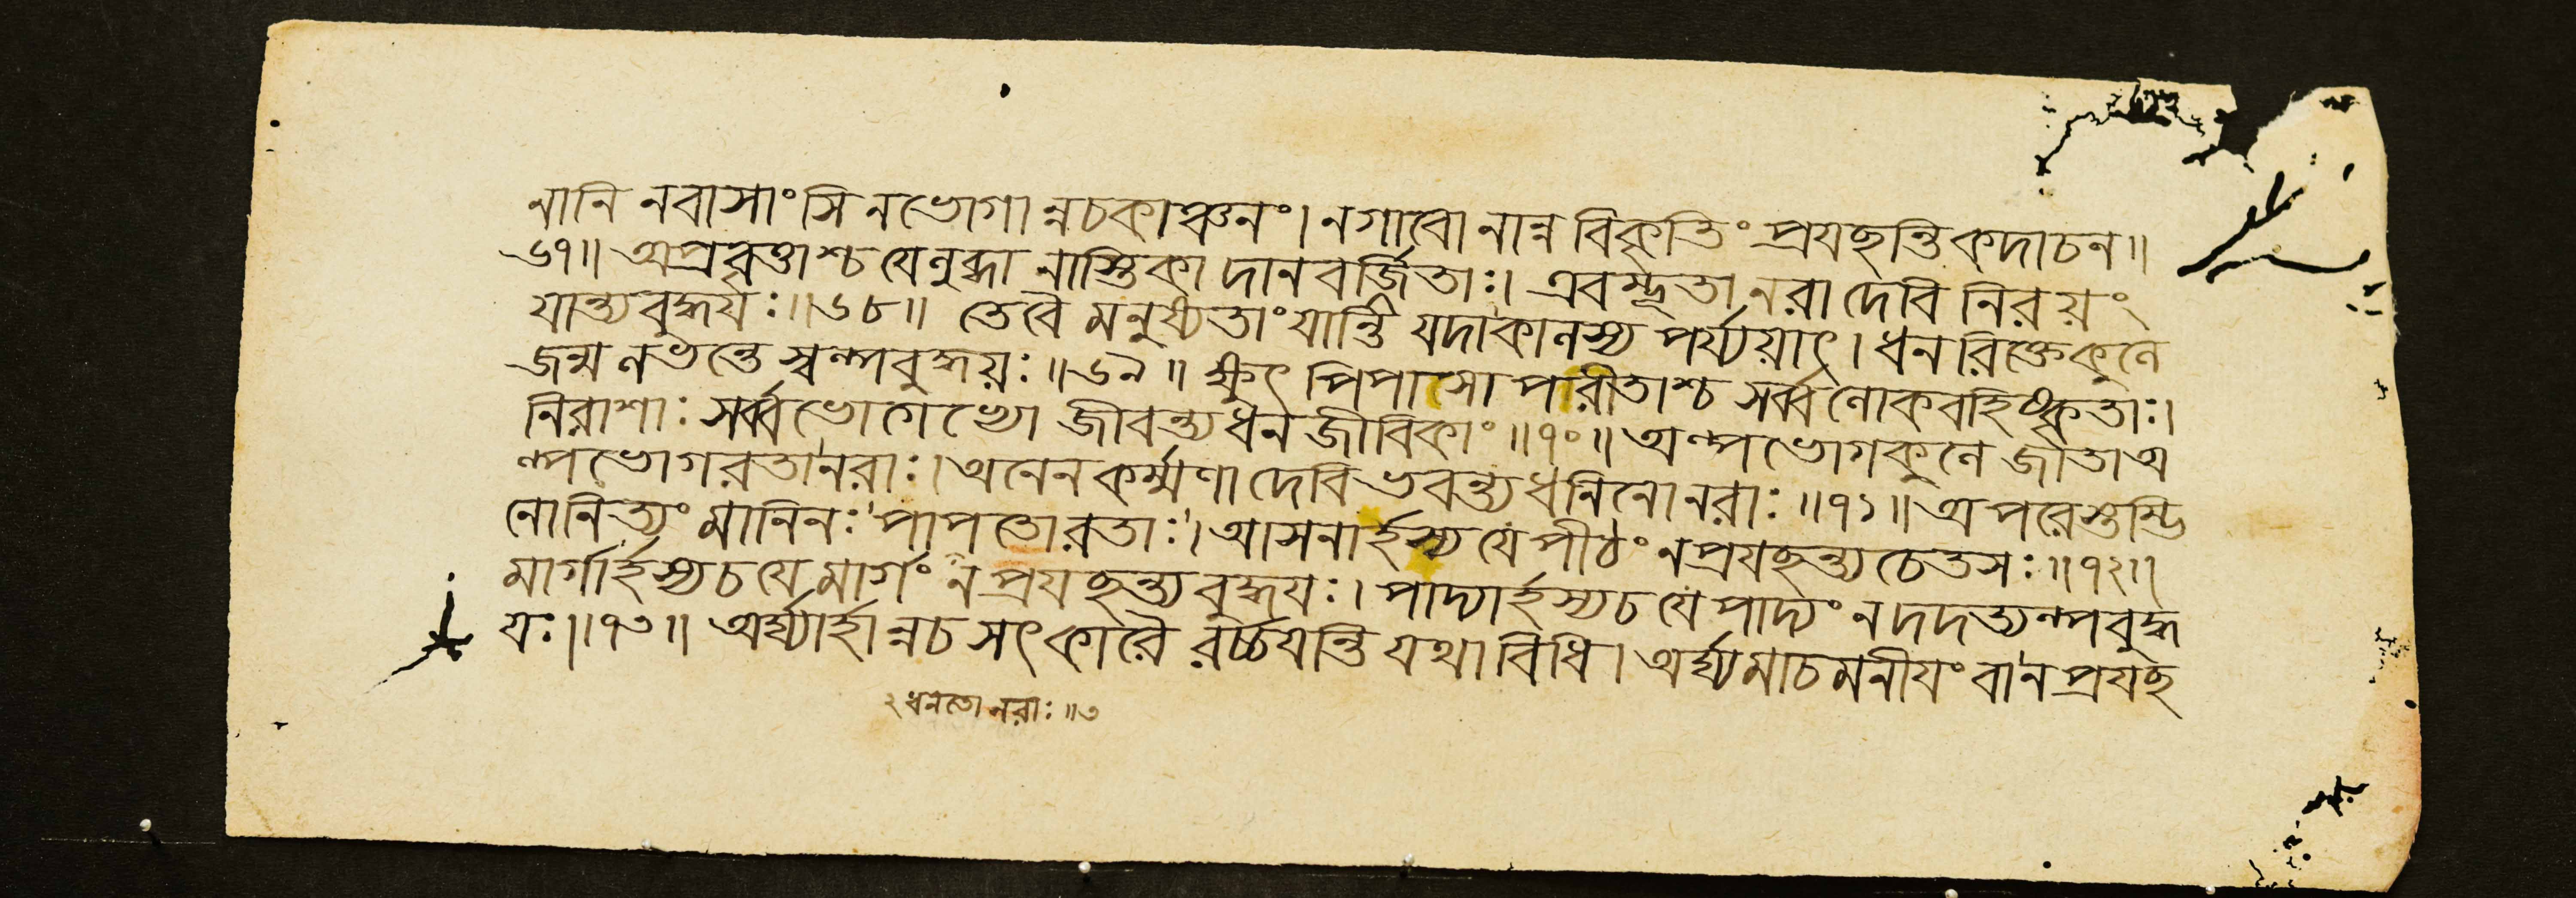 নানি নবাসাংসি নভোগান্নচকাঞ্চনং। নগাবো নান্ন বিকৃতিং প্রযচ্ছন্তি কদাচন॥
৬৭॥ অপ্রবৃত্তাশ্চ যেলুব্ধা নাস্তিকা দানবর্জিতাঃ। এবম্ভূতা নরা দেবি নিরয়ং
যান্ত্যবুদ্ধয়ঃ॥৬৮॥ তেবৈ মনুষ্যতাং যান্তি যদাকালস্য পর্য্যয়াৎ। ধনরিক্তেকুলে
জন্ম লভন্তে স্বল্পবুদ্ধয়ঃ॥৬৯॥ ক্ষুৎ পিপাসো পরীতাশ্চ সর্ব্বলোকবহিষ্কৃতাঃ।
নিরাশাঃ সর্ব্বভোগেভ্যো জীবন্ত্যধনজীবিকাং॥৭০॥ অল্পভোগকুলে জাতা অ
ল্পভোগরতানরাঃ। অনেন কর্ম্মণা দেবি ভবন্ত্যধনিনোনরাঃ॥৭১॥ অপরেস্তম্ভি
নোনিত্যং মানিনঃ পাপতোরতাঃ। আসনার্হস্য যে পীঠং নপ্রযচ্ছন্ত্যচেতসঃ॥৭২॥
মার্গার্হস্যচ যে মার্গং ন প্রযচ্ছন্ত্যবুদ্ধয়ঃ। পাদ্যার্হস্যচ যে পাদ্যং ন দদত্যল্পবুদ্ধ
য়ঃ॥৭৩॥ অর্ঘ্যার্হান্নচ সৎকারৈ রর্চ্চয়ন্তি যথাবিধি। অর্ঘ্যমাচমনীয়ং বা ন প্রযচ্ছ
২ ধনতো নরাঃ॥৩